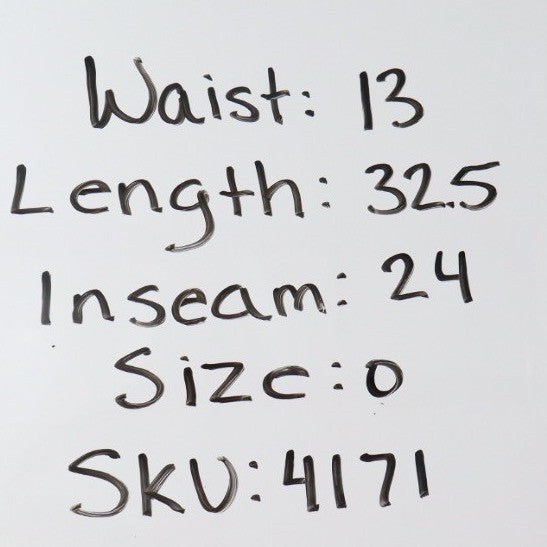 Waist: 13
Length: 32.5
Inseam: 24
Size: 0
SKU: 4171